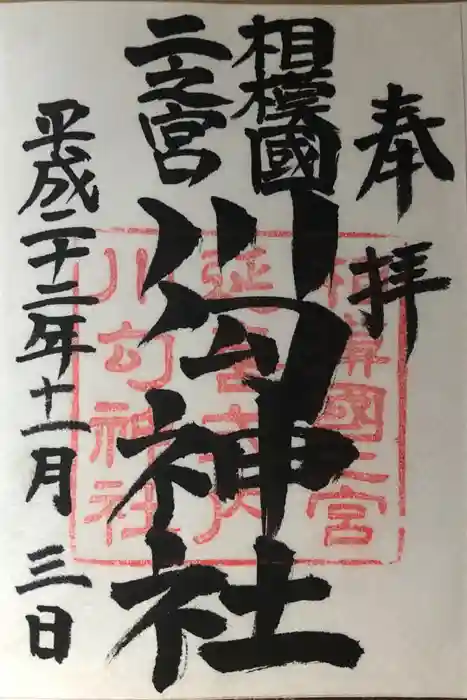 奉拝
相模國
二之宮
川勾神社
平成二十二年十一月三日
相模國二宮
延喜式内
川勾神社